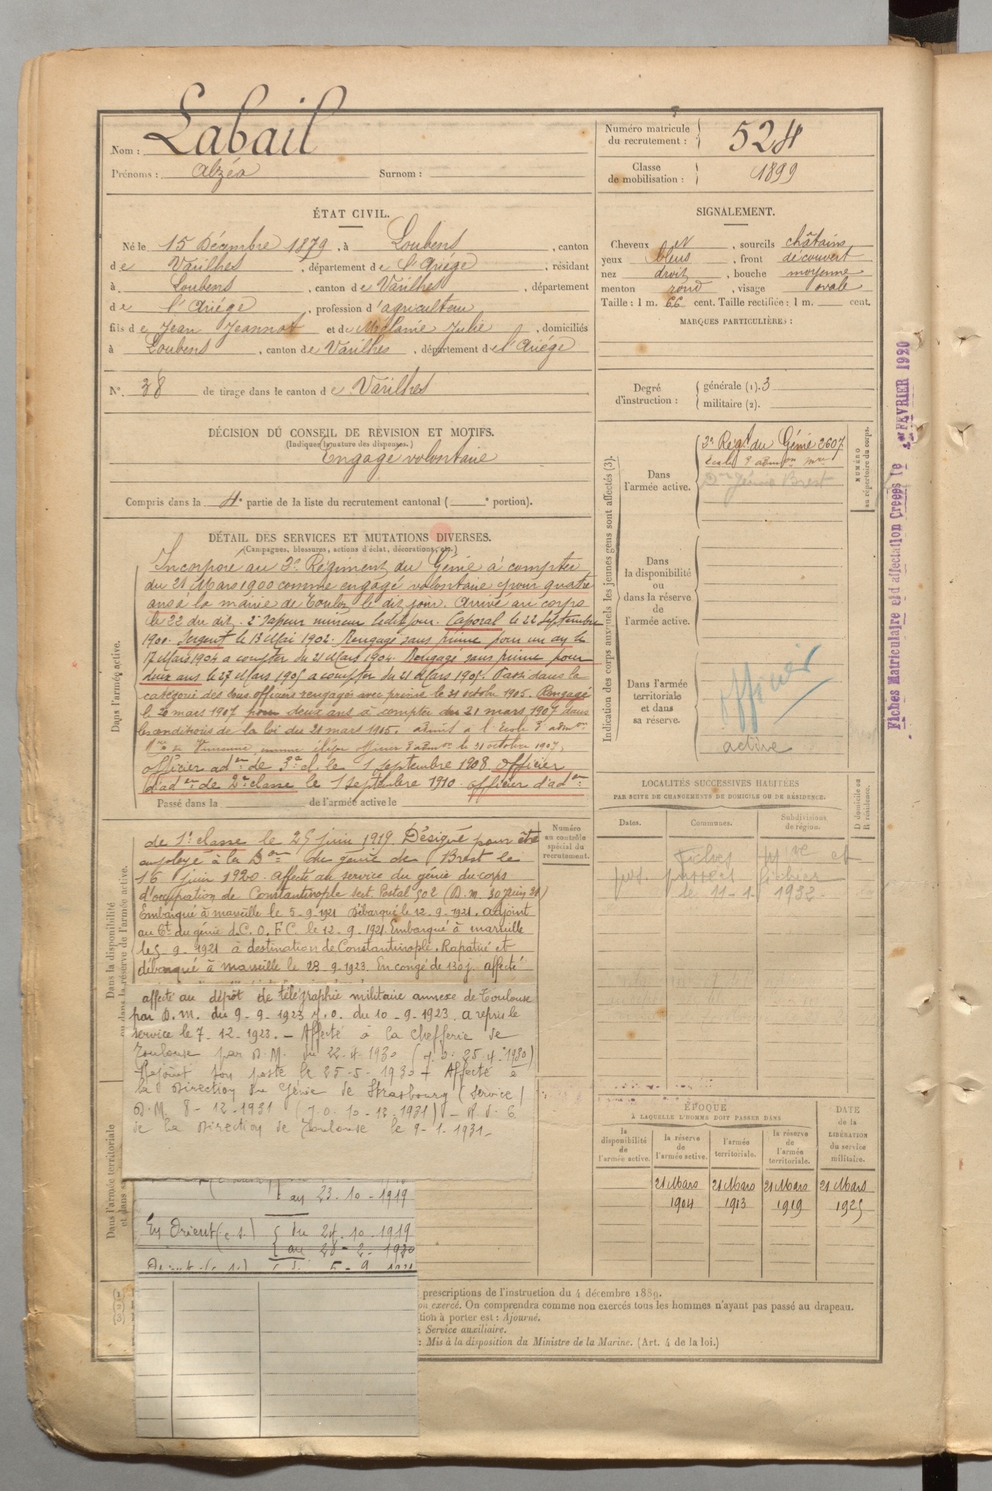 Nom : Labail
Prénoms : Alzéa Surnom :
Numéro matricule du recrutement : 524
Classe de mobilisation : 1899
ÉTAT CIVIL.
Né le 15 Décembre 1879, à Loubens, canton
de Varilhes, département de l'Ariége, résidant
à Loubens, canton de Varilhes, département
de l'Ariége, profession d'agriculteur
fils de Jean Jeannot et de Mélanie Julie, domiciliés
à Loubens, canton de Varilhes, département de l'Ariége
N° 38 de tirage dans le canton de Varilhes
SIGNALEMENT.
Cheveux et, sourcils châtains
yeux bleus, front découvert
nez droit, bouche moyenne
menton rond, visage ovale
Taille : 1 m. 66 cent. Taille rectifiée : 1 m. cent.
MARQUES PARTICULIÈRES :
Degré d'instruction : générale (1). 3
militaire (2).
DÉCISION DU CONSEIL DE RÉVISION ET MOTIFS.
(Indiquer la nature des dispenses.)
Engagé volontaire
Compris dans la 4e partie de la liste du recrutement cantonal ( e portion).
DÉTAIL DES SERVICES ET MUTATIONS DIVERSES.
(Campagnes, blessures, actions d'éclat, décorations, etc.)
Dans l'armée active.
Incorporé au 2e Régiment du Génie à compter
du 21 Mars 1900 comme engagé volontaire pour quatre
ans à la mairie de Toulon le dix jour. Arrivé au corps
le 22 du dit. 2e Sapeur mineur ledit jour. Caporal le 22 Septembre
1900. Sergent le 13 Mai 1902. Rengagé sans prime pour un an le
17 Mars 1904 à compter du 21 Mars 1904. Rengagé sans prime pour
deux ans le 27 Mars 1905 à compter du 21 Mars 1905. Passé dans la
catégorie des sous officiers rengagés avec prime le 31 octobre 1905. Rengagé
le 20 mars 1907 pour deux ans à compter du 21 mars 1907 dans
les conditions de la loi du 21 mars 1905. admis à l'École d'admon
de Vincennes comme élève officier d'admon le 21 octobre 1907.
Officier adon de 3e cl. le 1 septembre 1908 Officier
d'adon de 2e classe le 1 septembre 1910 officier d'adon
Passé dans la de l'armée active le
de 1e classe le 25 juin 1919 Désigné pour être
employé à la Don du génie de Brest le
16 juin 1920. Affecté au service du génie du corps
d'occupation de Constantinople sect. Postal 502 (D.M. 30 Juin 21)
Embarqué à marseille le 5-9-1921 Débarqué le 12-9-1921. adjoint
au Ct du génie d.C.O.F.C. le 12-9-1921. Embarqué à marseille
le 5-9-1921 à destination de Constantinople. Rapatrié et
débarqué à marseille le 28-9-1923. En congé de 130 j. affecté
affecté au dépôt de télégraphie militaire annexe de Toulouse
par D.M. du 9-9-1923 J.O. du 10-9-1923. a repris le
service le 7-12-1923. — Affecté à la chefferie de
Toulouse par D.M. du 22-4-1930 (J.O. 25-4-1930)
Rejoint son poste le 25-5-1930 — Affecté à
la Direction du Génie de Strasbourg (service)
D.M. 8-12-1931 (J.O. 10-12-1931) — R.d.C.
de la Direction de Toulouse le 9-1-1931.
au 23.10-1919
En Orient (c.s.) du 24.10-1919
au 28-2-1920
5-9 1921
Dans la disponibilité ou dans la réserve de l'armée active.
Dans l'armée territoriale
Numéro au contrôle spécial du recrutement.
Indication des corps auxquels les jeunes gens sont affectés (3).
Dans l'armée active.
2e Régt du Génie 2607
Don Génie Brest
Dans la disponibilité ou dans la réserve de l'armée active.
Dans l'armée territoriale et dans sa réserve.
officier
active
NUMÉRO au répertoire du corps.
LOCALITÉS SUCCESSIVES HABITÉES
PAR SUITE DE CHANGEMENTS DE DOMICILE OU DE RÉSIDENCE.
Dates. Communes. Subdivisions de région.
D domicile ou R résidence.
le 11-1-1932
ÉPOQUE
À LAQUELLE L'HOMME DOIT PASSER DANS
la disponibilité de l'armée active.
la réserve de l'armée active. 21 Mars 1904
l'armée territoriale. 21 Mars 1913
la réserve de l'armée territoriale. 21 Mars 1919
DATE de la LIBÉRATION du service militaire. 21 Mars 1925
prescriptions de l'instruction du 4 décembre 1889.
on exercé. On comprendra comme non exercés tous les hommes n'ayant pas passé au drapeau.
tion à porter est : Ajourné.
: Service auxiliaire.
: Mis à la disposition du Ministre de la Marine. (Art. 4 de la loi.)
Fiches Matriculaire et d'affectation Créées le 1er FEVRIER 1920